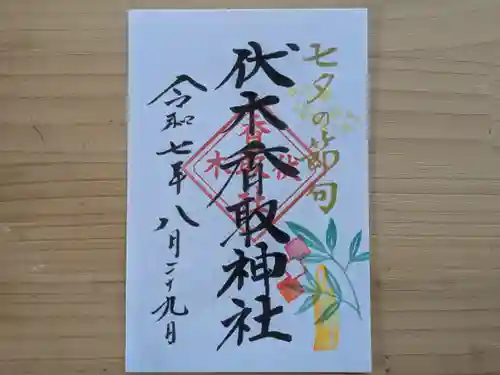 七夕の節句
伏木香取神社
令和七年 八月二十九日